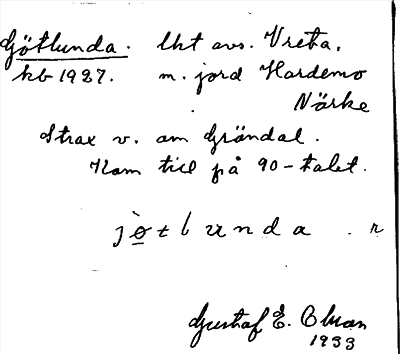 Götlunda. lht avs. Vreta,
kb 1927. m. jord Hardemo
Närke
Strax v. om Gröndal.
Kom till på 90-talet.
jò̲tlunda. r
Gustaf E. Olman
1933